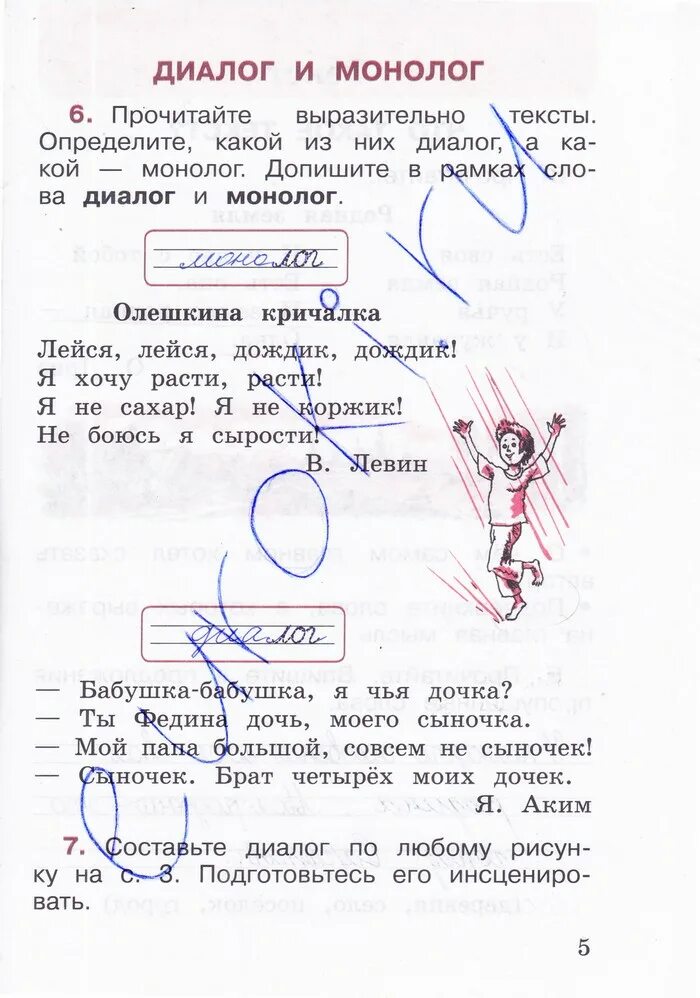 ДИАЛОГ И МОНОЛОГ
6. Прочитайте выразительно тексты.
Определите, какой из них диалог, а ка-
кой — монолог. Допишите в рамках сло-
ва диалог и монолог.
монолог
Олешкина кричалка
Лейся, лейся, дождик, дождик!
Я хочу расти, расти!
Я не сахар! Я не коржик!
Не боюсь я сырости!
В. Левин
диалог
— Бабушка-бабушка, я чья дочка?
— Ты Федина дочь, моего сыночка.
— Мой папа большой, совсем не сыночек!
— Сыночек. Брат четырёх моих дочек.
Я. Аким
7. Составьте диалог по любому рисун-
ку на с. 3. Подготовьтесь его инсцениро-
вать.
5